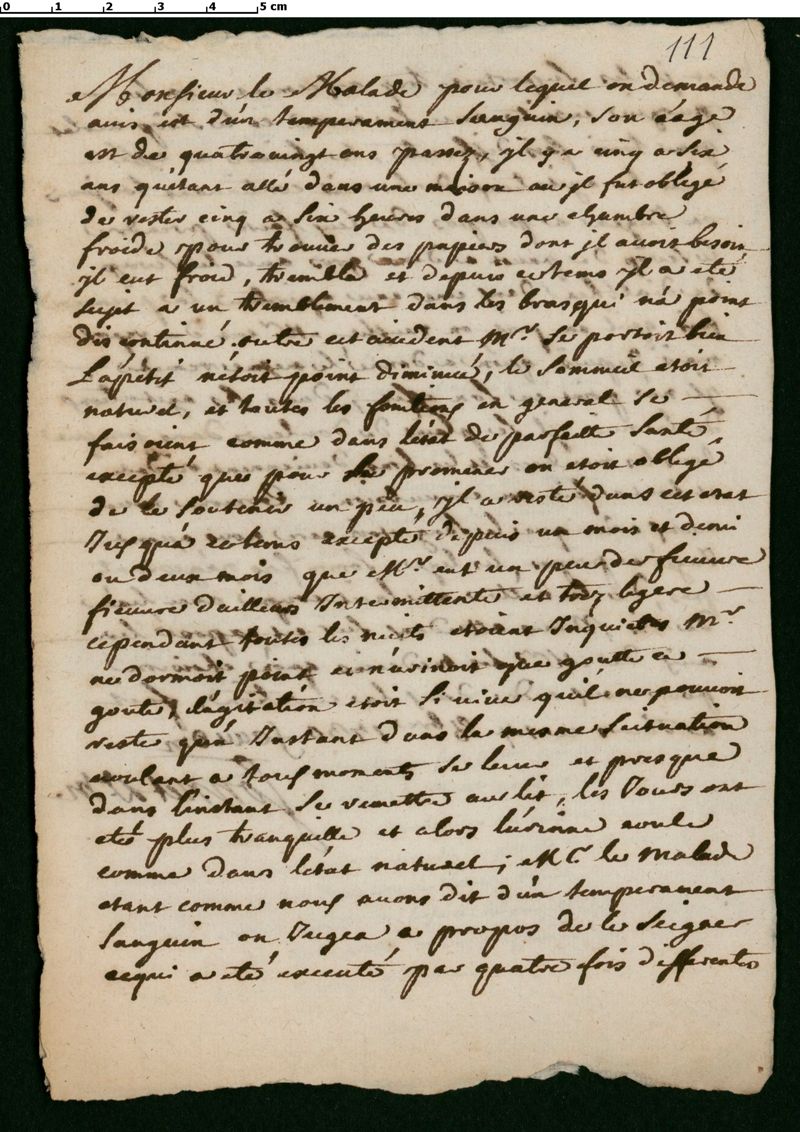 0 1 2 3 4 5 cm
111
Monsieur le Malade pour lequel on demande
avis est d'un temperament sanguin, son âage
est de quatrevingt ans passez, jl y a cinq a six
ans qu'etant allé dans une maison ou jl fut obligé
de rester cinq a six heures dans une chambre
froide pour trouver des papiers dont jl avoit besoin
jl eut froid, trembla et depuis ce tems jl a eté
sujet a un tremblement dans les bras qui n'a point
discontinué. outre cet accident Mr. se portoit bien
L'apétit n'étoit point diminué, le sommeil etoit
naturel, et toutes les fontions en general se
faisoient comme dans l'etat de parfaitte santé
excepté que pour le promener on etoit obligé
de le soutenir un peu, jl a resté dans cet etat
Jusqu'a ce tems excepté depuis un mois et demi
ou deux mois que Mr. eut un peu de fieuvre
fieuvre d'ailleurs Intermittente et trez legere
cependant toutes les nuits etoient Inquietes Mr.
ne dormoit point et n'urinoit que goutte a
goute, l'agitation etoit si vive qu'il ne pouvoit
reste qu'un Instant dans la mesme scituation
voulant a tous moments se lever et presque
dans l'instant se remettre au lit, les Jours ont
eté plus tranquille et alors l'urinne coule
comme dans l'état naturel; Mr. le Malade
etant comme nous avons dit d'un temperament
sanguin on Jugea a propos de le seigner
cequi a eté executé par quatre fois differentes